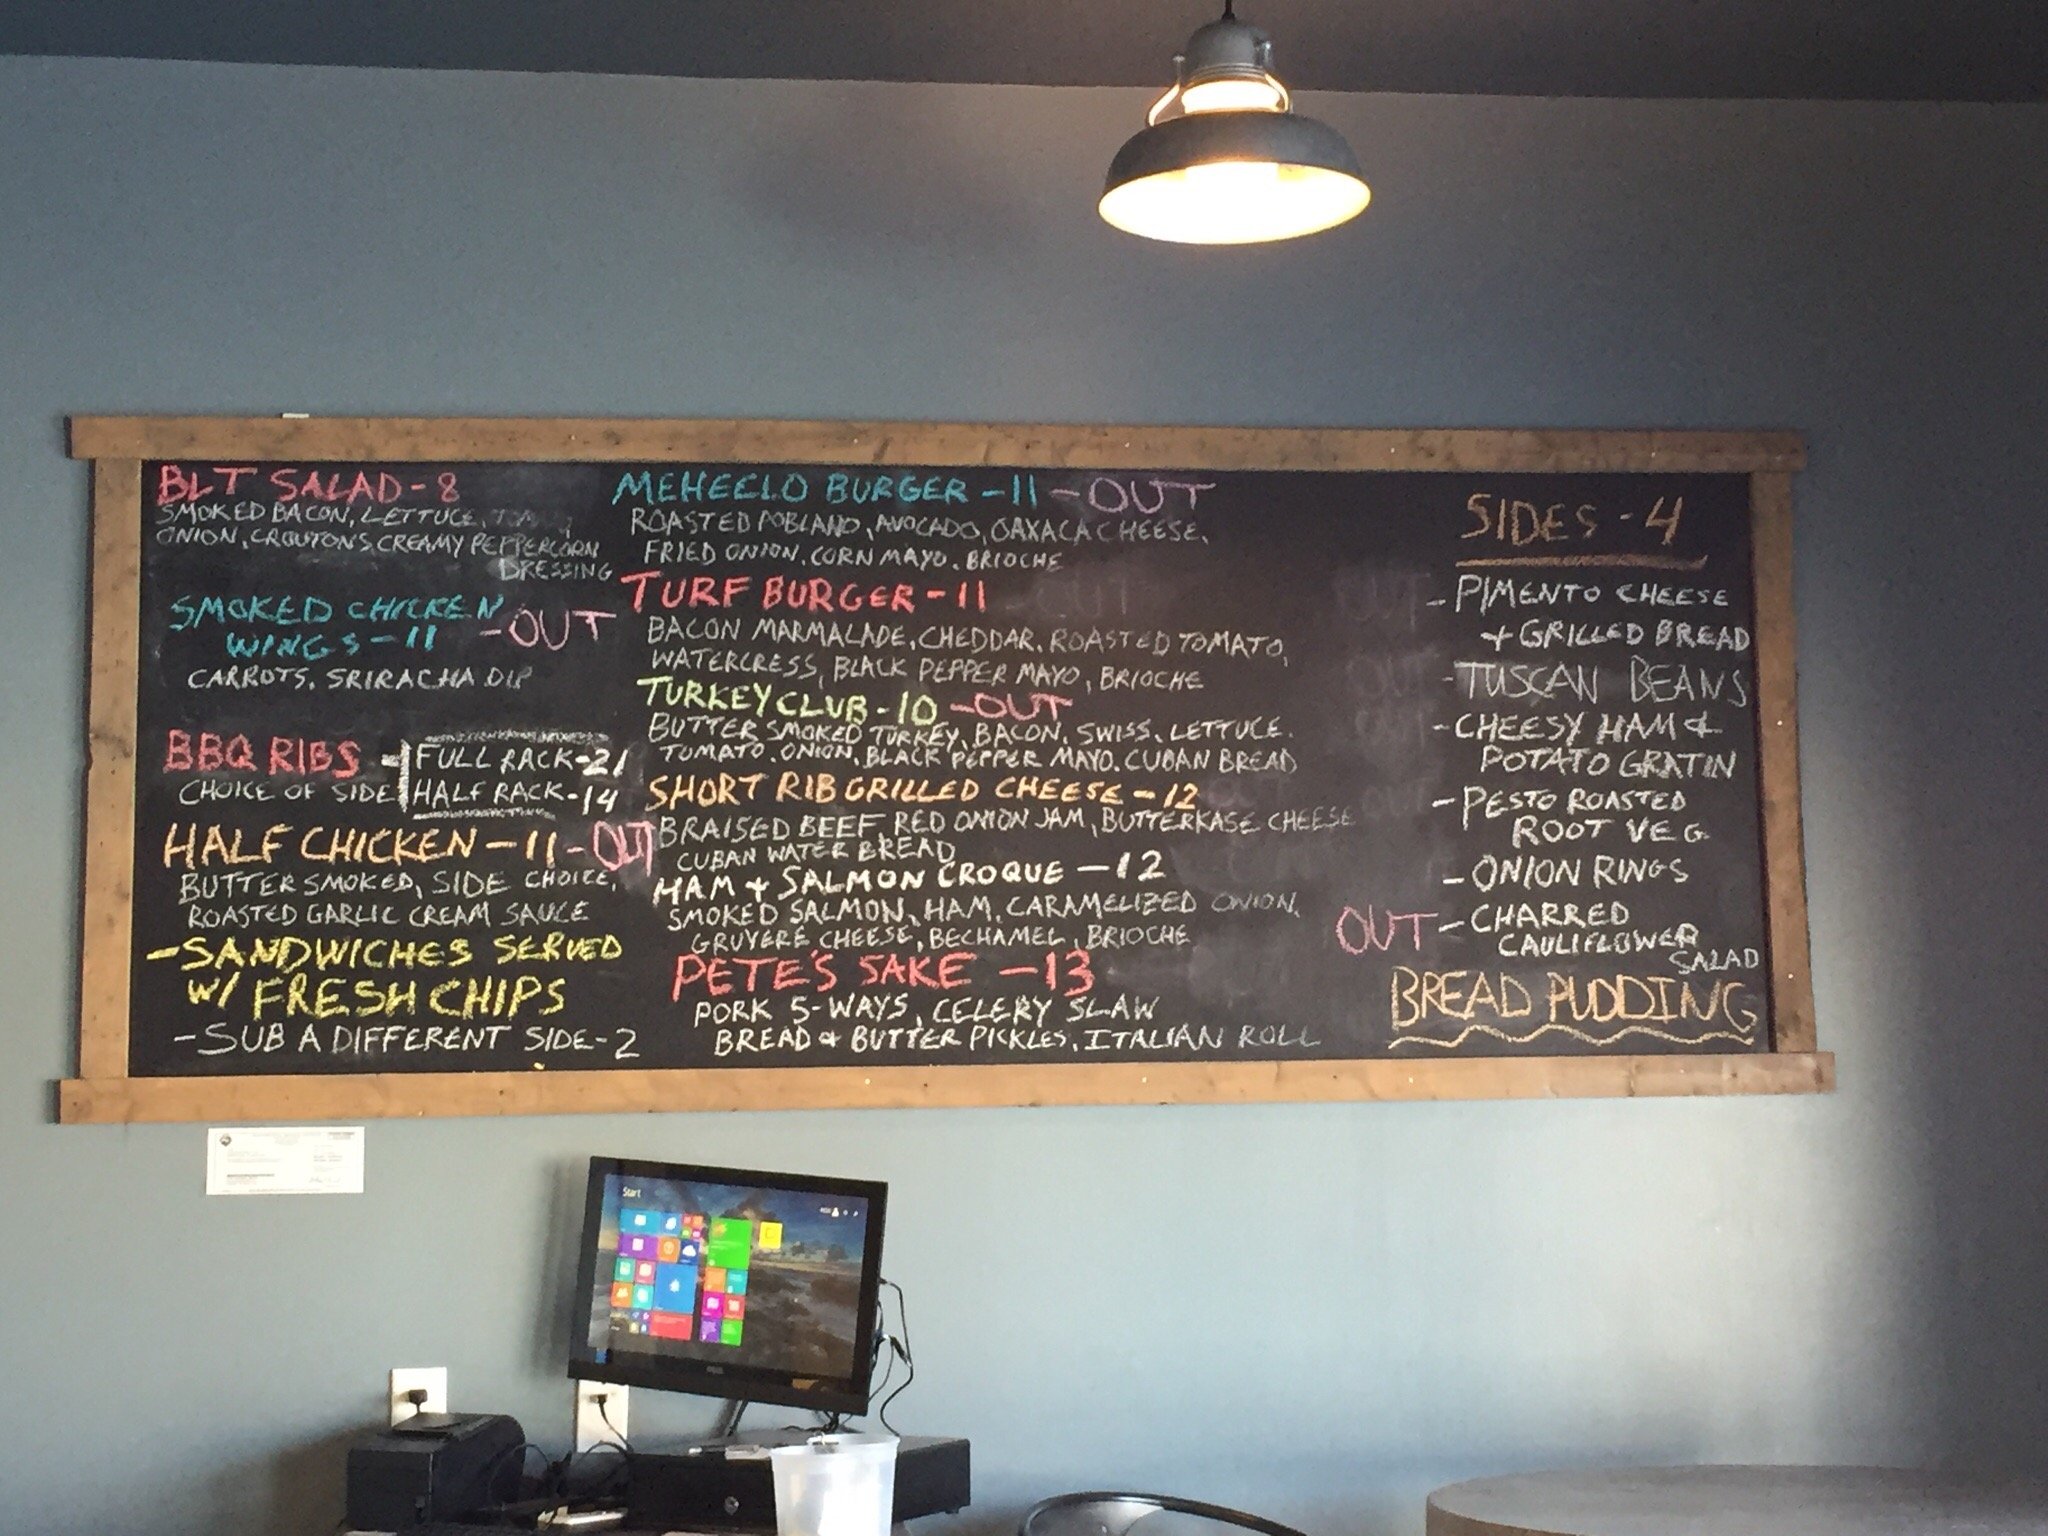 BLT SALAD - 8
SMOKED BACON, LETTUCE,
ONION, CROUTONS, CREAMY PEPPERCORN
DRESSING
SMOKED CHICKEN
WINGS - 11 - OUT
CARROTS, SRIRACHA DIP
BBQ RIBS - FULL RACK - 21
CHOICE OF SIDE HALF RACK - 14
HALF CHICKEN - 11 - OUT
BUTTER SMOKED, SIDE CHOICE,
ROASTED GARLIC CREAM SAUCE
- SANDWICHES SERVED
W/ FRESH CHIPS
- SUB A DIFFERENT SIDE - 2
MEHEELO BURGER - 11 - OUT
ROASTED POBLANO, AVOCADO, OAXACA CHEESE,
FRIED ONION, CORN MAYO, BRIOCHE
TURF BURGER - 11
BACON MARMALADE, CHEDDAR, ROASTED TOMATO,
WATERCRESS, BLACK PEPPER MAYO, BRIOCHE
TURKEY CLUB - 10 - OUT
BUTTER SMOKED TURKEY, BACON, SWISS, LETTUCE,
TOMATO, ONION, BLACK PEPPER MAYO, CUBAN BREAD
SHORT RIB GRILLED CHEESE - 12
BRAISED BEEF, RED ONION JAM, BUTTERKASE CHEESE
CUBAN WATER BREAD
HAM + SALMON CROQUE - 12
SMOKED SALMON, HAM, CARAMELIZED ONION,
GRUYERE CHEESE, BECHAMEL, BRIOCHE
PETE'S SAKE - 13
PORK 5-WAYS, CELERY SLAW
BREAD & BUTTER PICKLES, ITALIAN ROLL
SIDES - 4
- PIMENTO CHEESE
+ GRILLED BREAD
- TUSCAN BEANS
- CHEESY HAM &
POTATO GRATIN
- PESTO ROASTED
ROOT VEG
- ONION RINGS
OUT - CHARRED
CAULIFLOWER
SALAD
BREAD PUDDING
Start